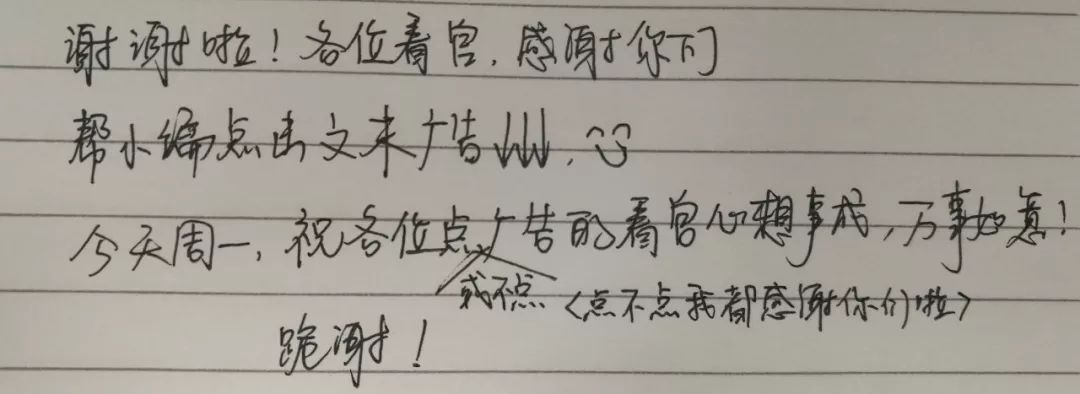 谢谢啦！各位看官，感谢你们
帮小编点击文末广告↓↓↓，
今天周一，祝各位点广告的看官心想事成，万事如意！
或不点〈点不点我都感谢你们啦〉
跪谢！